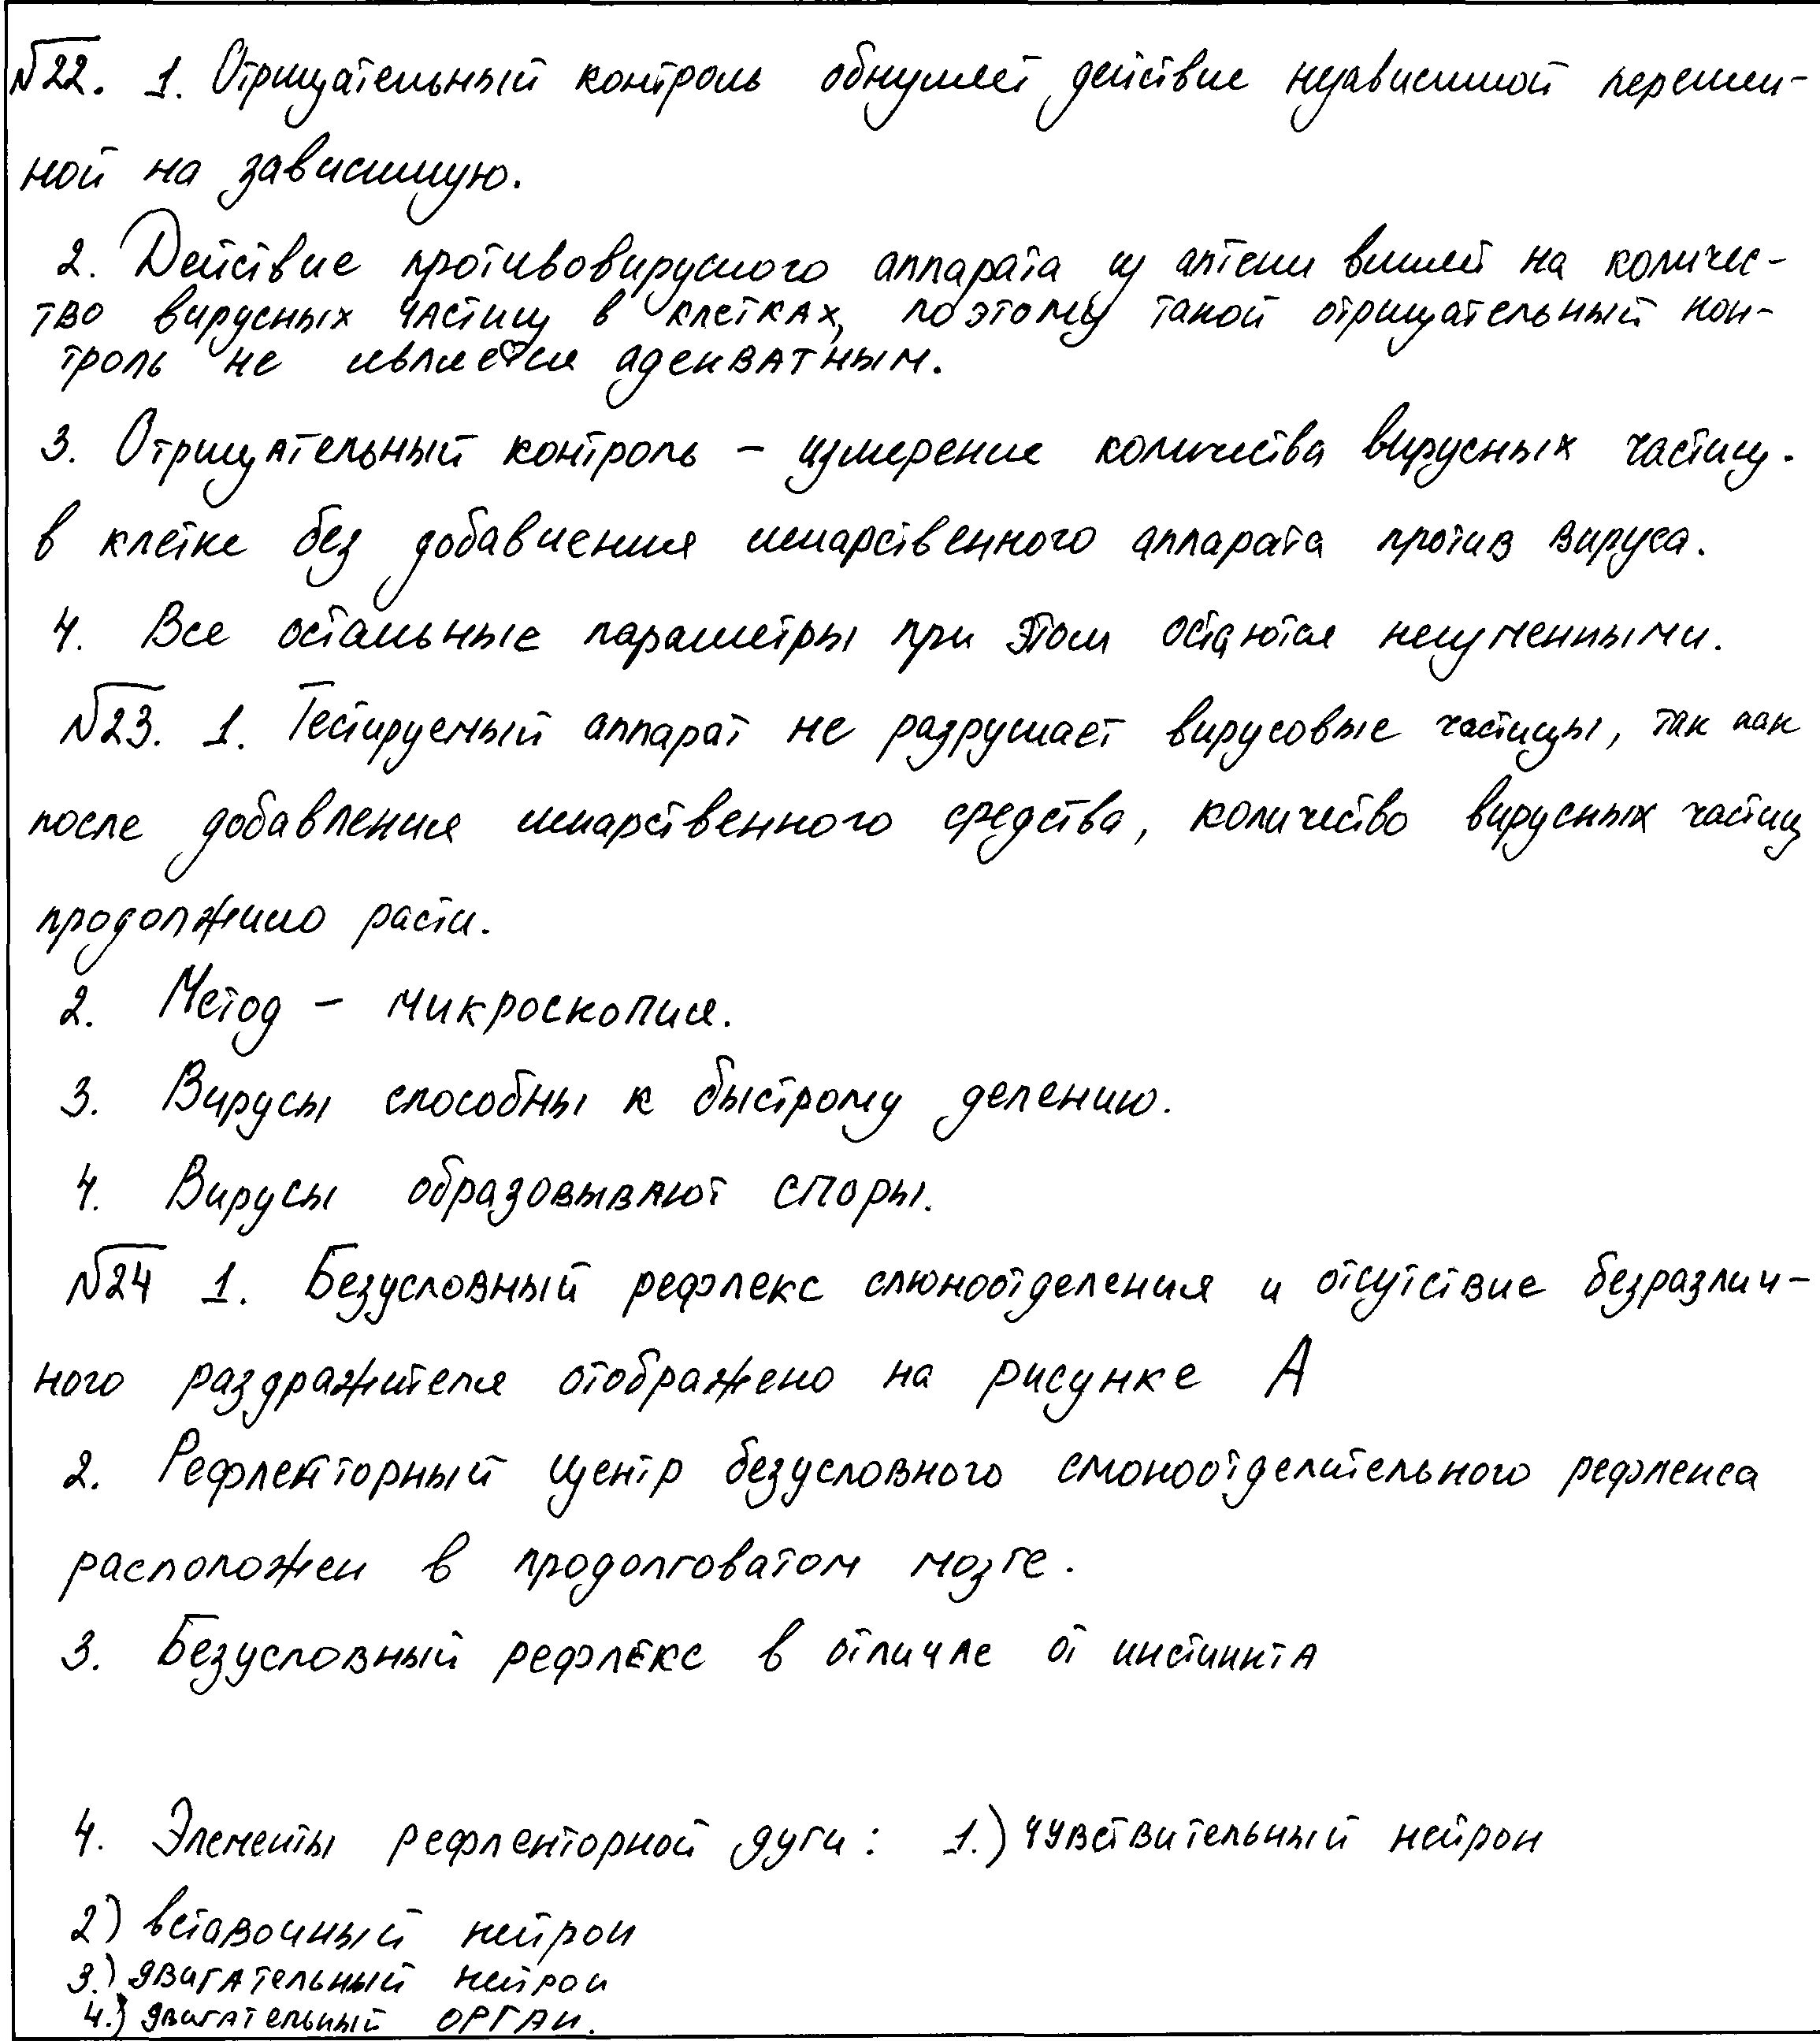 №22. 1. Отрицательный контроль обнуляет действие независимой перемен-
ной на зависимую.
2. Действие противовирусного аппарата из аптеки влияет на количес-
тво вирусных частиц в клетках, поэтому такой отрицательный кон-
троль не является адекватным.
3. Отрицательный контроль – измерение количества вирусных частиц.
в клетке без добавления лекарственного аппарата против вируса.
4. Все остальные параметры при этом остаются неизменными.
№23. 1. Тестируемый аппарат не разрушает вирусовые частицы, так как
после добавления лекарственного средства, количество вирусных частиц
продолжило расти.
2. Метод – микроскопия.
3. Вирусы способны к быстрому делению.
4. Вирусы образовывают споры.
№24 1. Безусловный рефлекс слюноотделения и отсутствие безразлич-
ного раздражителя отображено на рисунке А
2. Рефлекторный центр безусловного слюноотделительного рефлекса
расположен в продолговатом мозге.
3. Безусловный рефлекс в отличие от инстинкта
4. Элементы рефлекторной дуги: 1.) чувствительный нейрон
2) вставочный нейрон
3.) двигательный нейрон
4.) двигательный орган.